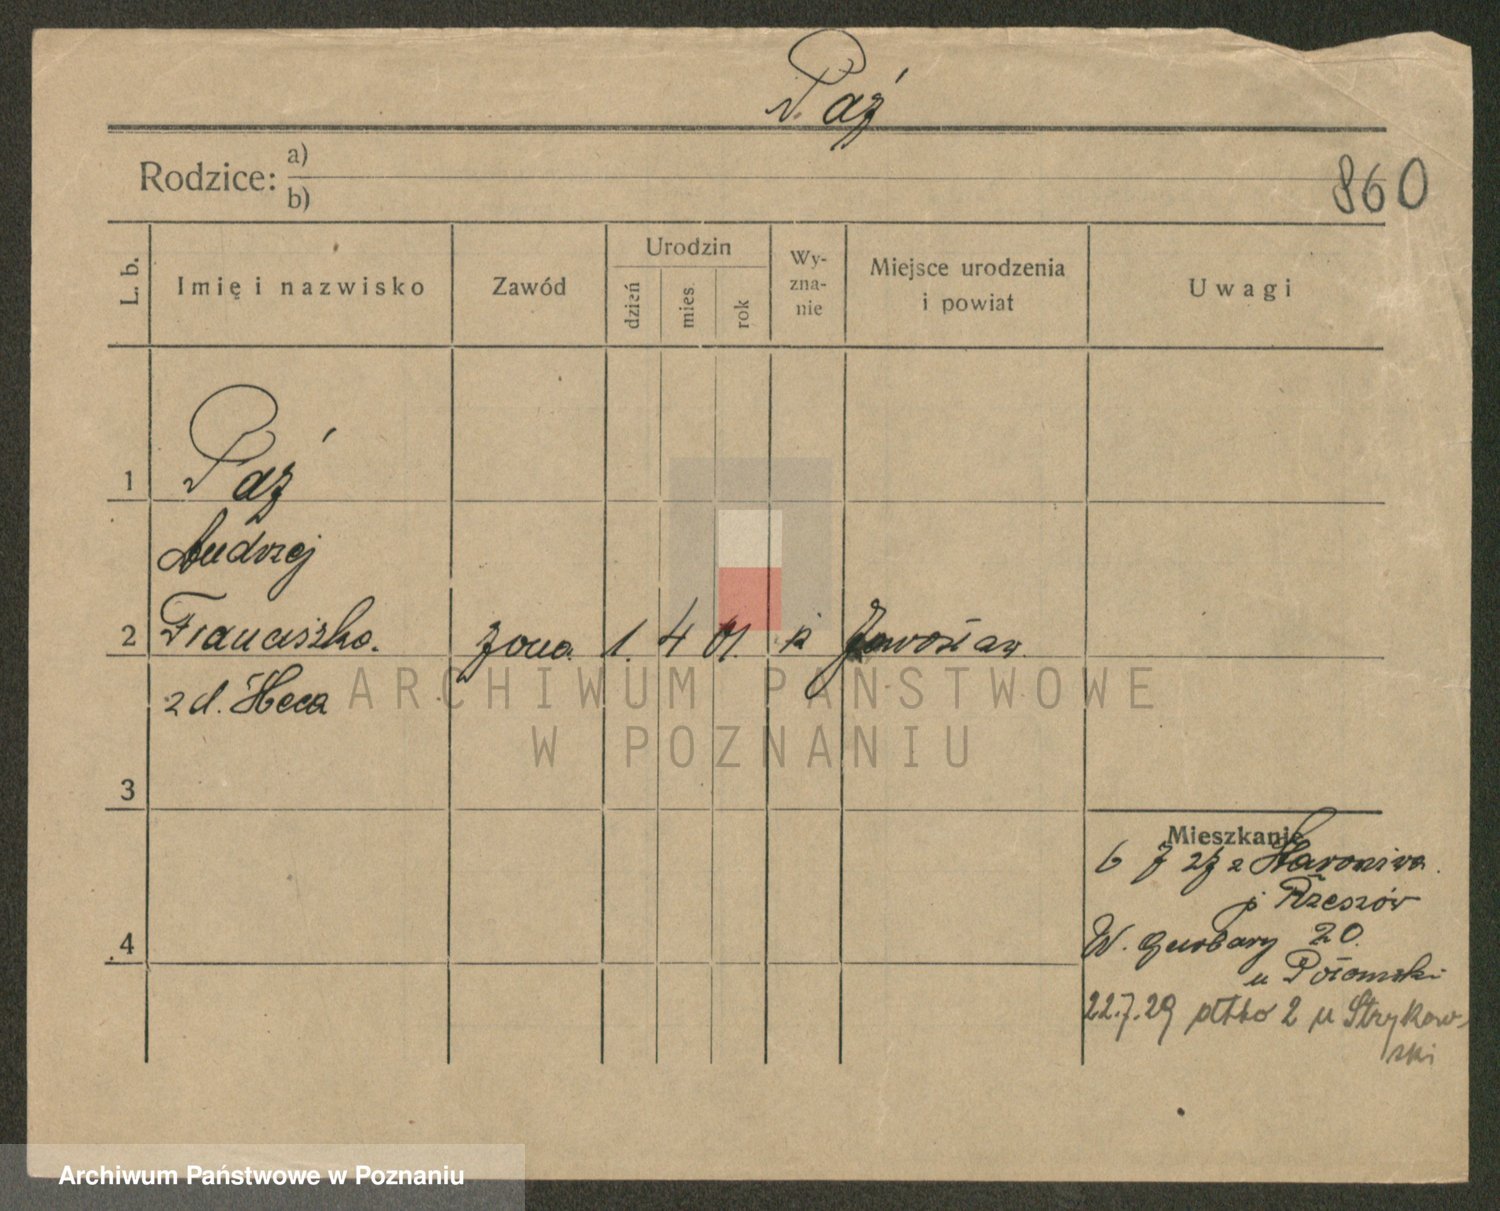 Paź
Rodzice: a)
b)
860
L. b.
Imię i nazwisko
Zawód
Urodzin
dzień
mies
rok
Wy-
zna-
nie
Miejsce urodzenia
i powiat
Uwagi
1
Paź
Andrzej
2 Franciszka. żona 1. 4 01. k Jarosław
z d. Heca
ARCHIWUM PAŃSTWOWE
W POZNANIU
3
Mieszkanie
6 7 27 z
p Rzeszów
4
W. Garbary 20.
u Połomski
22.7.29 2 u Strykow-
ski
Archiwum Państwowe w Poznaniu